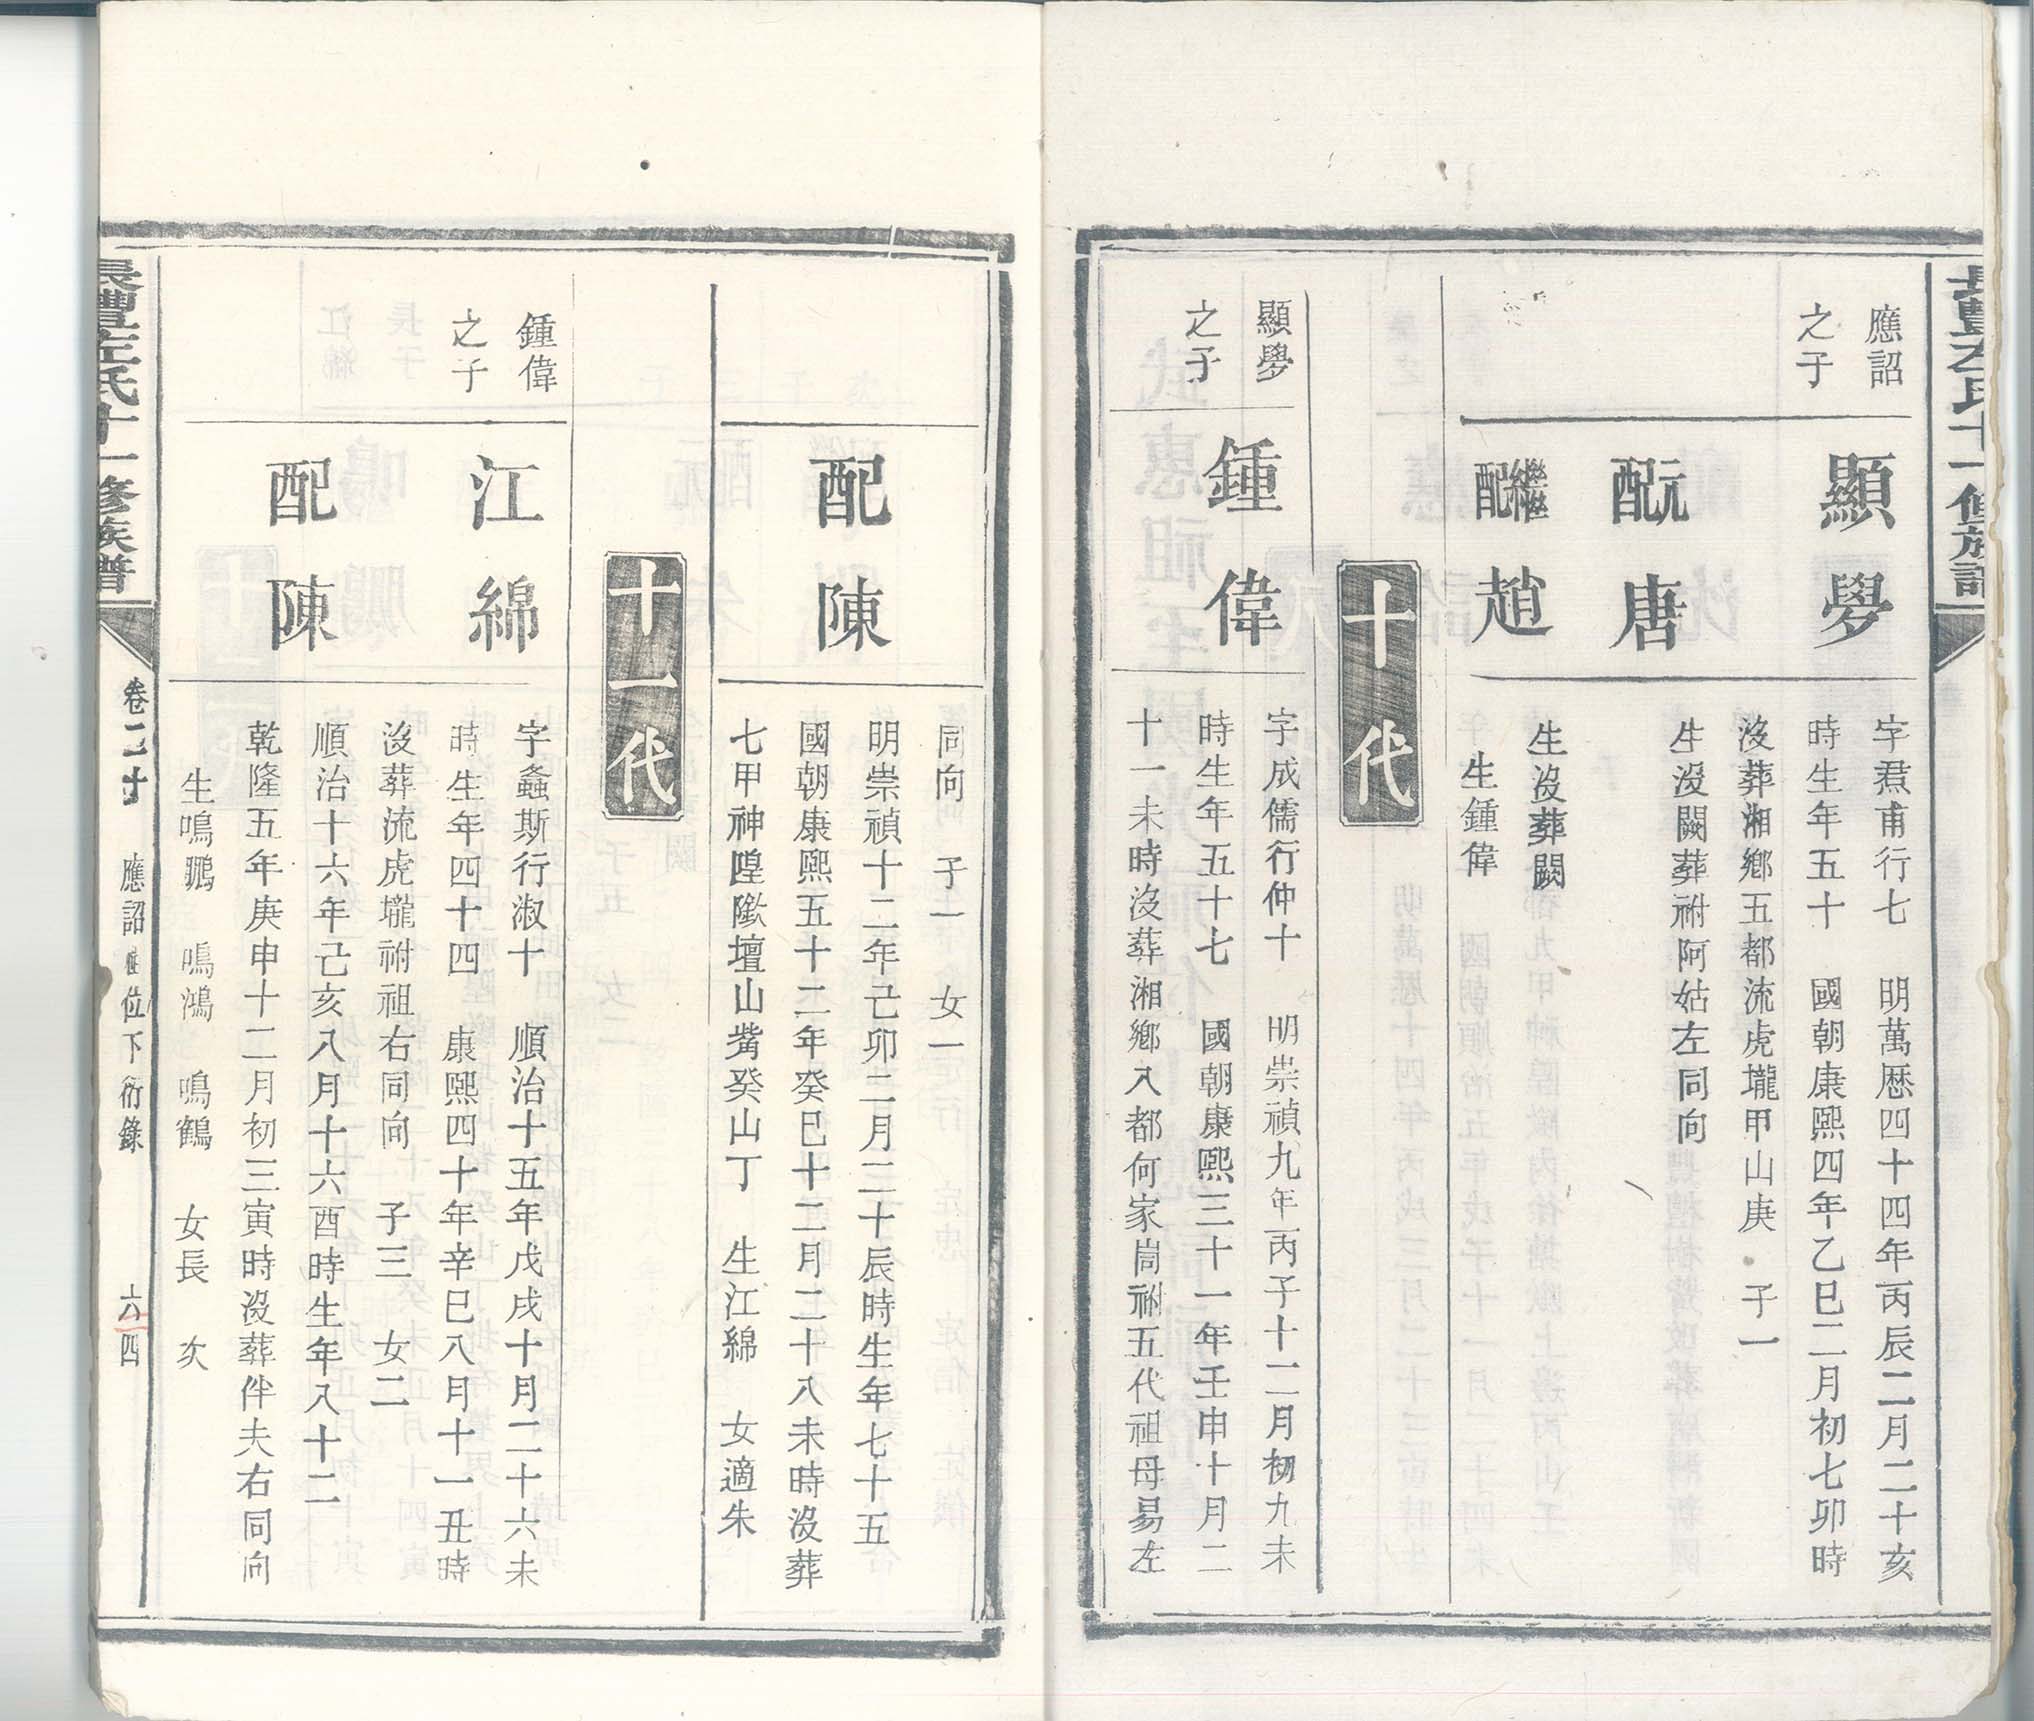 應詔
之子
顯學
配元
唐
配繼
趙
字君甫行七　明萬歷四十四年丙辰二月二十亥
時生年五十　國朝康熙四年乙巳二月初七卯時
沒葬湘鄉五都流虎壠甲山庚　子一
生沒闕葬祔阿姑左同向
生沒葬闕
生鍾偉
十代
顯學
之子
鍾偉
字成儒行仲十　明崇禎九年丙子十二月初九未
時生年五十七　國朝康熙三十一年壬申十月二
十一未時沒葬湘鄉入都何家崗祔五代祖母易左
配陳
同向　子一　女一
明崇禎十二年己卯二月二十辰時生年七十五
國朝康熙五十二年癸巳十二月二十八未時沒葬
七甲神隍歘壇山觜癸山丁　生江綿　女適朱
十一代
鍾偉
之子
江綿
配陳
字螽斯行淑十　順治十五年戊戌十月二十六未
時生年四十四　康熙四十年辛巳八月十一丑時
沒葬流虎壠祔祖右同向　子三　女二
順治十六年己亥八月十六酉時生年八十二
乾隆五年庚申十二月初三寅時沒葬伴夫右同向
生鳴鵬　鳴鴻　鳴鶴　女長　次
長豐左氏十一修族譜
應詔位下衍錄
六四